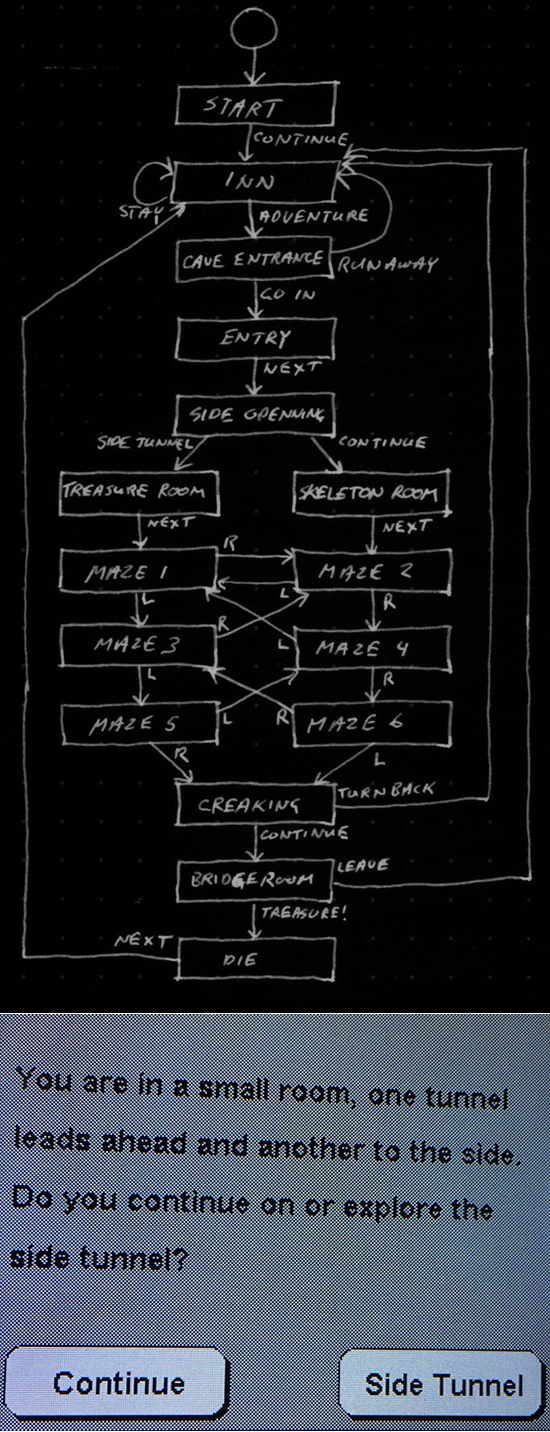 START
CONTINUE
INN
STAY
ADVENTURE
CAVE ENTRANCE
RUN AWAY
GO IN
ENTRY
NEXT
SIDE OPENNING
SIDE TUNNEL
CONTINUE
TREASURE ROOM
SKELETON ROOM
NEXT
NEXT
R
MAZE 1
MAZE 2
L
L
R
R
MAZE 3
MAZE 4
L
L
R
MAZE 5
L
R
MAZE 6
R
L
CREAKING
TURN BACK
CONTINUE
BRIDGE ROOM
LEAVE
TREASURE!
NEXT
DIE
You are in a small room, one tunnel
leads ahead and another to the side.
Do you continue on or explore the
side tunnel?
Continue
Side Tunnel